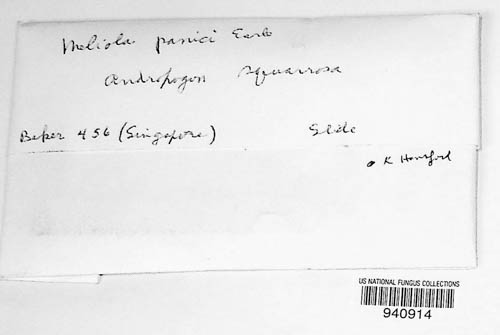 Meliola panici Earle
Andropogon squarrosa
Baker 456 (Singapore) Slide
K Hansford
US NATIONAL FUNGUS COLLECTIONS
940914